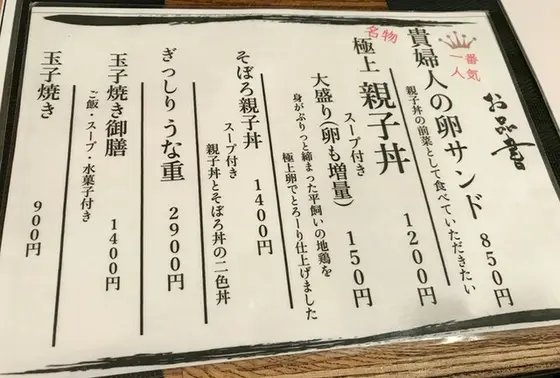 お品書
一番
人気
貴婦人の卵サンド 850円
親子丼の前菜として食べていただきたい
名物
極上 親子丼 1200円
スープ付き
大盛り(卵も増量) 150円
身がぷりっと締まった平飼いの地鶏を
極上卵でとろーり仕上げました
そぼろ親子丼 1400円
スープ付き
親子丼とそぼろ丼の二色丼
ぎっしりうな重 2900円
玉子焼き御膳 1400円
ご飯・スープ・水菓子付き
玉子焼き 900円